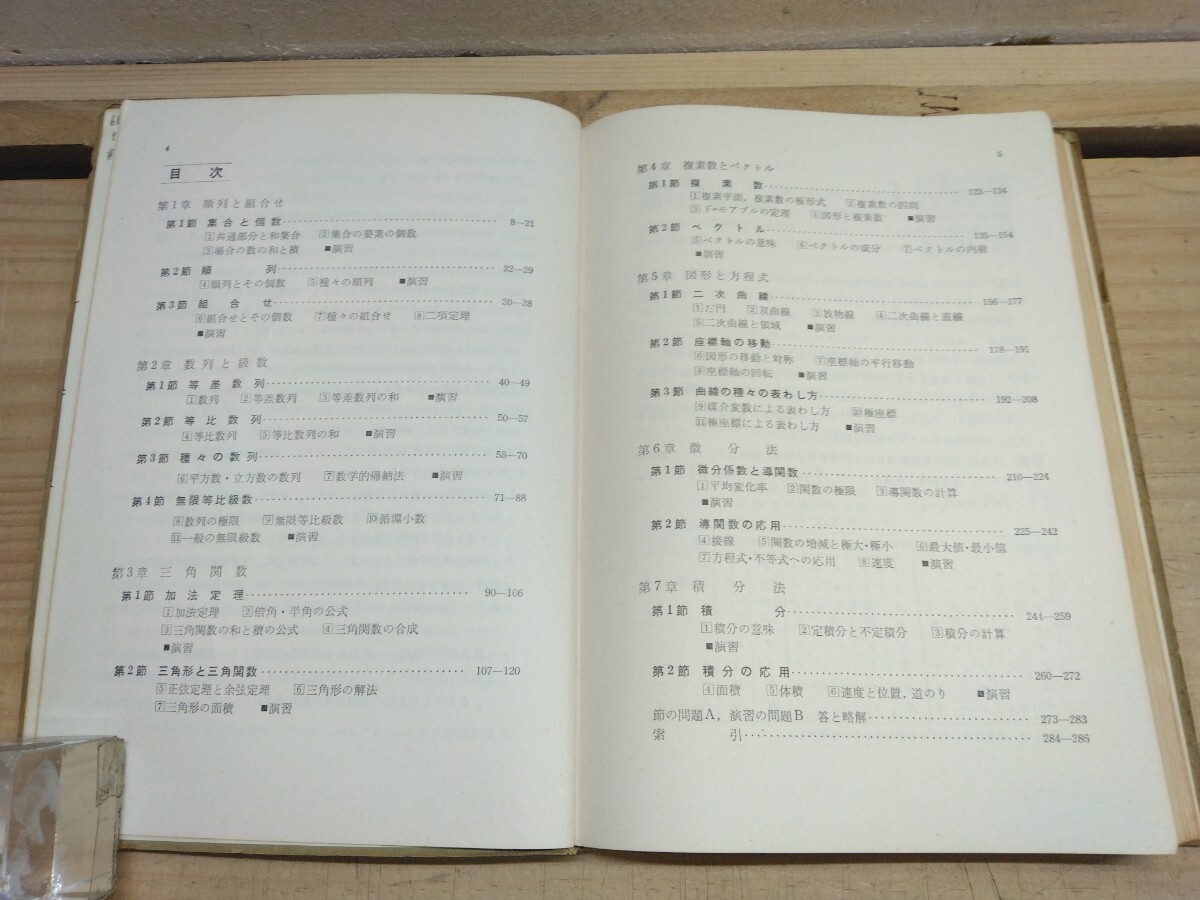 4
目次
第1章 順列と組合せ
第1節 集合と個数 8—21
1共通部分と和集合 2集合の要素の個数
3場合の数の和と積 ■演習
第2節 順列 22—29
4順列とその個数 5種々の順列 ■演習
第3節 組合せ 30—38
6組合せとその個数 7種々の組合せ 8二項定理
■演習
第2章 数列と級数
第1節 等差数列 40—49
1数列 2等差数列 3等差数列の和 ■演習
第2節 等比数列 50—57
4等比数列 5等比数列の和 ■演習
第3節 種々の数列 58—70
6平方数・立方数の数列 7数学的帰納法 ■演習
第4節 無限等比級数 71—88
8数列の極限 9無限等比級数 10循環小数
11一般の無限級数 ■演習
第3章 三角関数
第1節 加法定理 90—106
1加法定理 2倍角・半角の公式
3三角関数の和と積の公式 4三角関数の合成
■演習
第2節 三角形と三角関数 107—120
5正弦定理と余弦定理 6三角形の解法
7三角形の面積 ■演習
5
第4章 複素数とベクトル
第1節 複素数 122—134
1複素平面，複素数の極形式 2複素数の四則
3ド=モアブルの定理 4図形と複素数 ■演習
第2節 ベクトル 135—154
5ベクトルの意味 6ベクトルの成分 7ベクトルの内積
■演習
第5章 図形と方程式
第1節 二次曲線 156—177
1だ円 2双曲線 3放物線 4二次曲線と直線
5二次曲線と領域 ■演習
第2節 座標軸の移動 178—191
6図形の移動と対称 7座標軸の平行移動
8座標軸の回転 ■演習
第3節 曲線の種々の表わし方 192—208
9媒介変数による表わし方 10極座標
11極座標による表わし方 ■演習
第6章 微分法
第1節 微分係数と導関数 210—224
1平均変化率 2関数の極限 3導関数の計算
■演習
第2節 導関数の応用 225—242
4接線 5関数の増減と極大・極小 6最大値・最小値
7方程式・不等式への応用 8速度 ■演習
第7章 積分法
第1節 積分 244—259
1積分の意味 2定積分と不定積分 3積分の計算
■演習
第2節 積分の応用 260—272
4面積 5体積 6速度と位置，道のり ■演習
節の問題A，演習の問題B 答と略解 273—283
索引 284—286